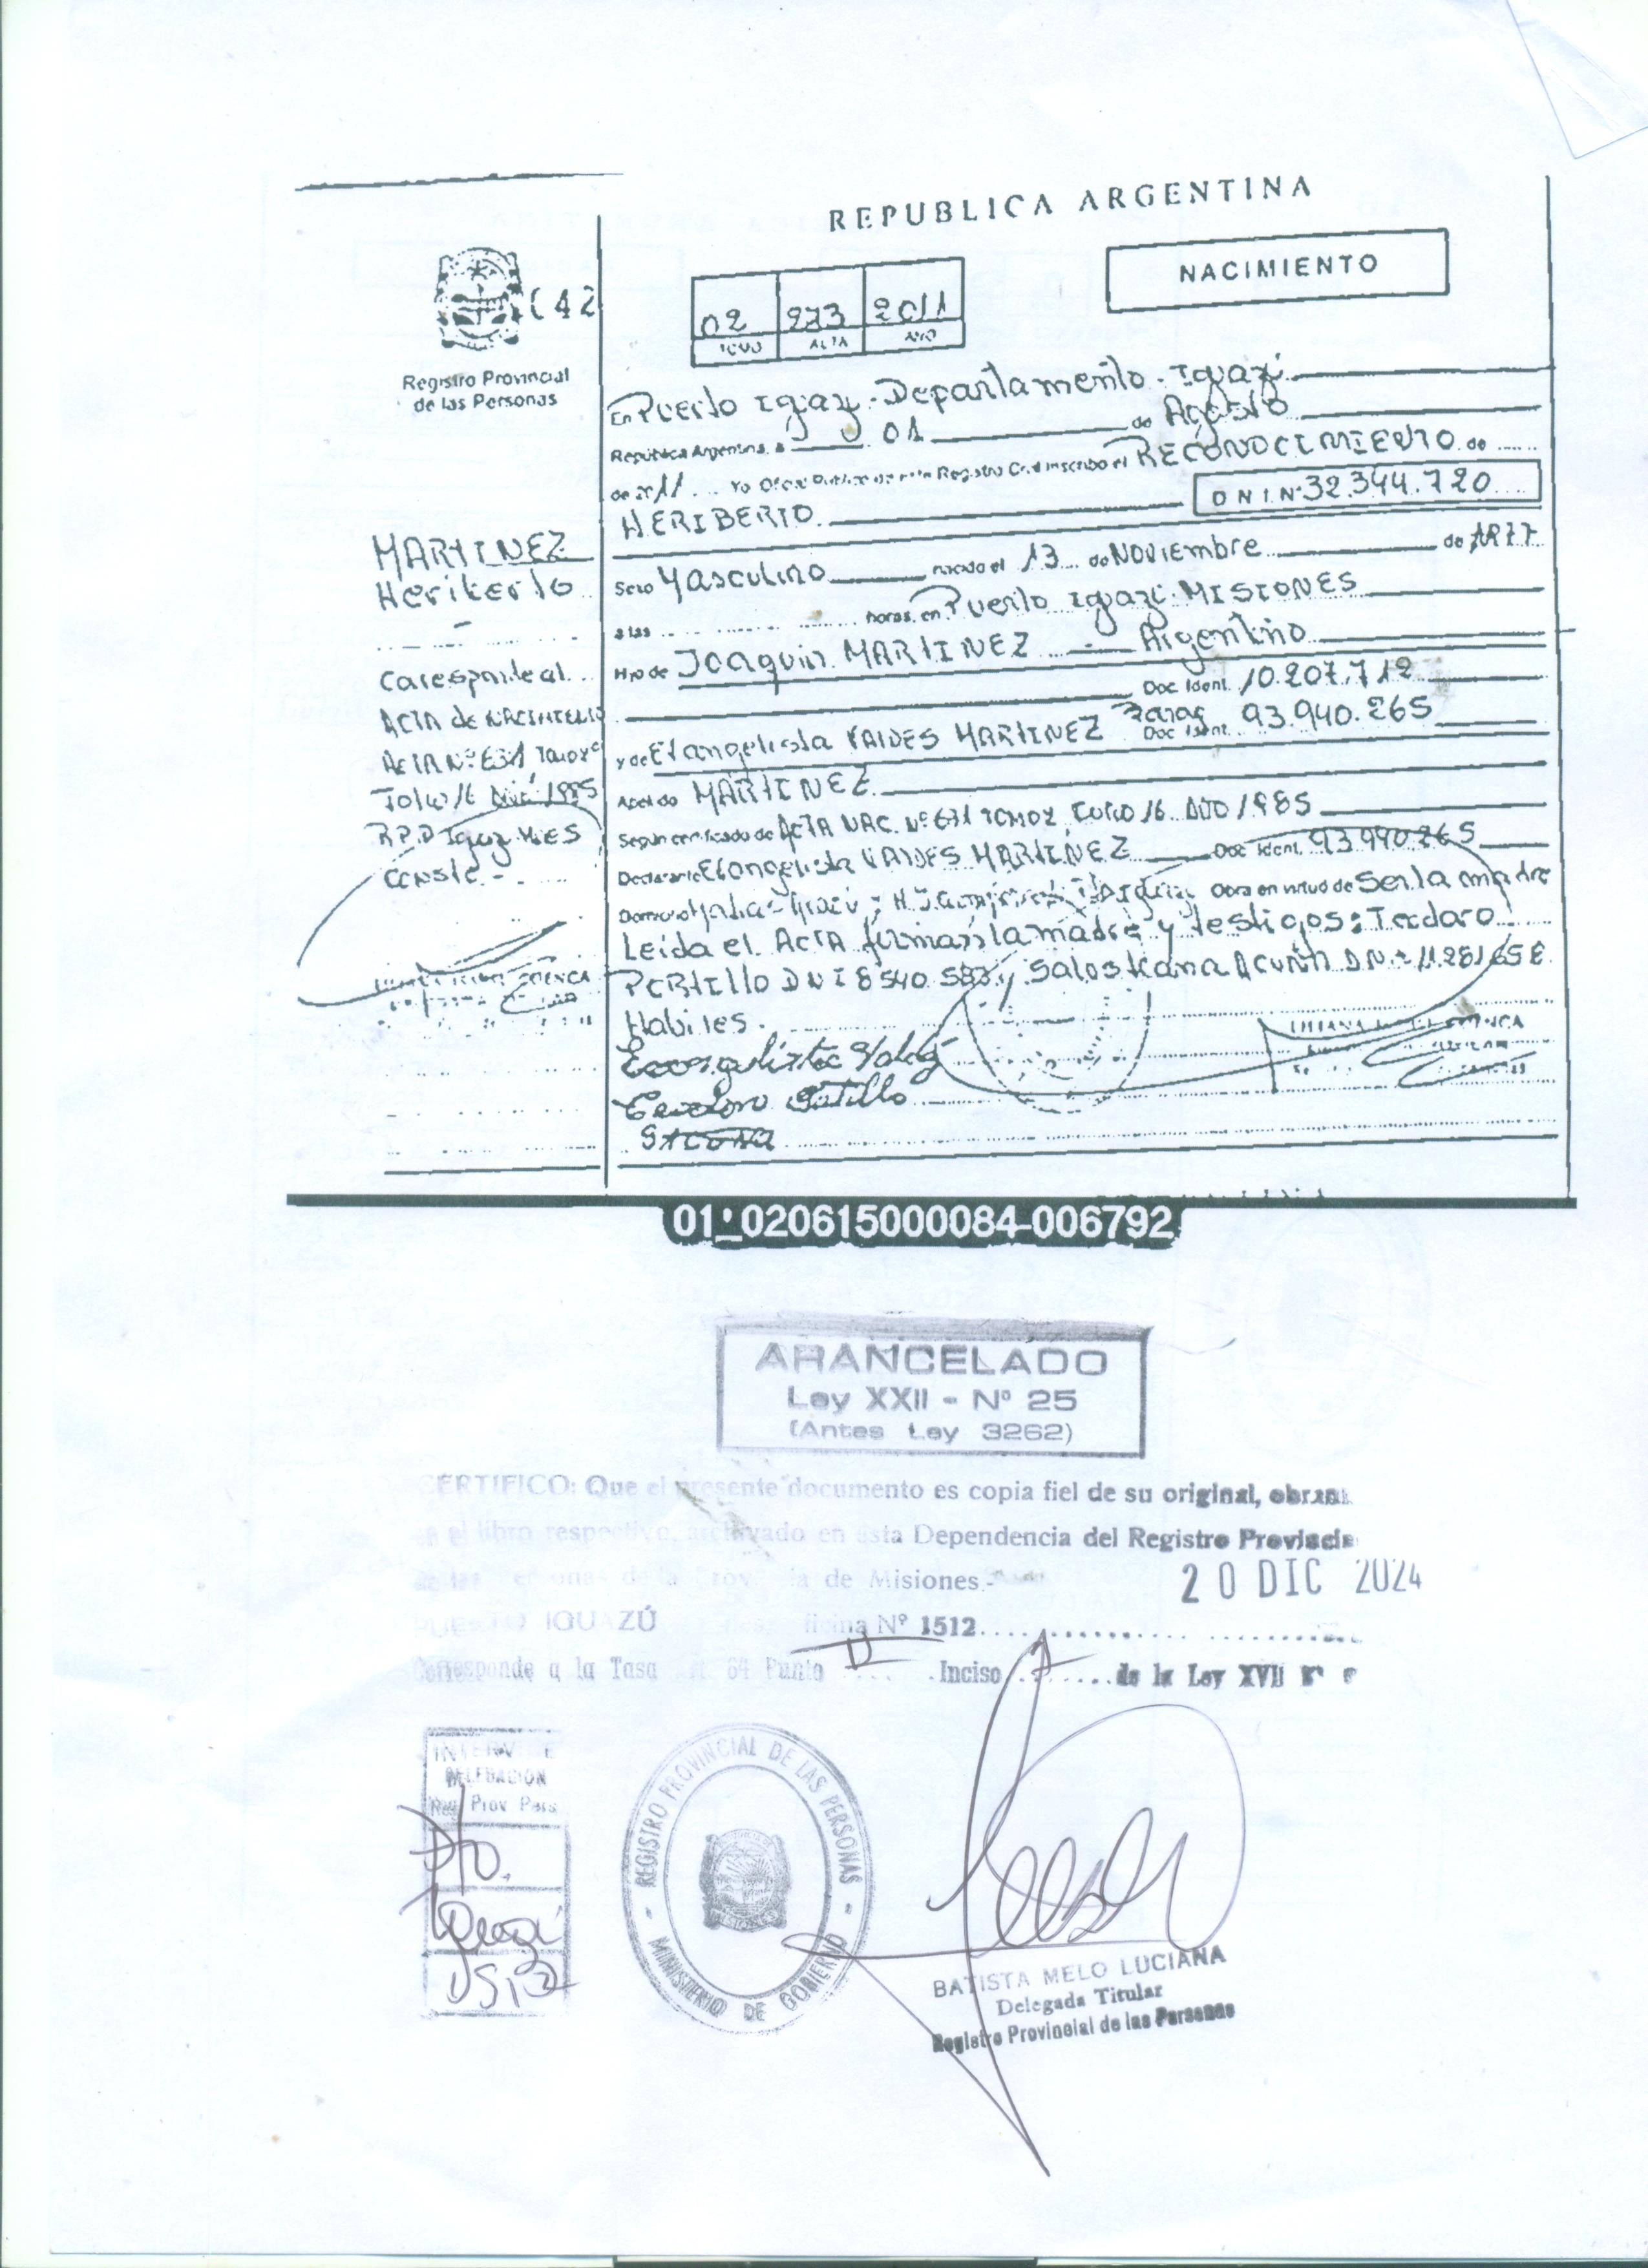 REPUBLICA ARGENTINA
NACIMIENTO
02 273 2011
TOMO ACTA AÑO
Registro Provincial
de las Personas
En Puerto Iguazú - Departamento - Iguazú
República Argentina, a 01 de Agosto
de 2011 Yo Oficial Público de este Registro Civil inscribo el RECONOCIMIENTO de
HERIBERTO DNI Nº 32.344.720
Sexo Masculino nacido el 13 de Noviembre de 1977
a las horas, en Puerto Iguazú - MISIONES
Hijo de Joaquin MARTINEZ - Argentino
Doc. Ident. 10.207.712
y de Evangelista VALDES MARTINEZ Parag Doc. Ident. 93.940.265
Apellido MARTINEZ
Según certificado de ACTA NAC. Nº 631 TOMO 2 FOLIO 16 AÑO 1985
Declarante Evangelista VALDES MARTINEZ Doc. Ident. 93940265
Domicilio Obra en virtud de Ser la madre
Leida el Acta firman la madre y testigos: Teodoro
PORTILLO DNI 8540583 y ACUÑA DNI 11.281658
Habiles.
Evangelista Valdez
Teodoro Portillo
MARTINEZ
Heriberto
Corresponde al
ACTA de NACIMIENTO
ACTA Nº 631 Tomo 2º
Folio 16 Año 1985
R.P.P Iguazú Mnes
Conste -
01_020615000084-006792
ARANCELADO
Ley XXII - Nº 25
(Antes Ley 3262)
CERTIFICO: Que el presente documento es copia fiel de su original,
en el libro respectivo, archivado en esta Dependencia del Registro
de las Personas de la Provincia de Misiones.-
20 DIC 2024
PUERTO IGUAZÚ Nº 1512
Corresponde a la Tasa 64 Punto II Inciso de la Ley XVII Nº
DELEGACION
Reg. Prov. Pers
Pto.
Iguazú
1512
REGISTRO PROVINCIAL DE LAS PERSONAS
MINISTERIO DE GOBIERNO
MISIONES
BATISTA MELO LUCIANA
Delegada Titular
Registro Provincial de las Personas